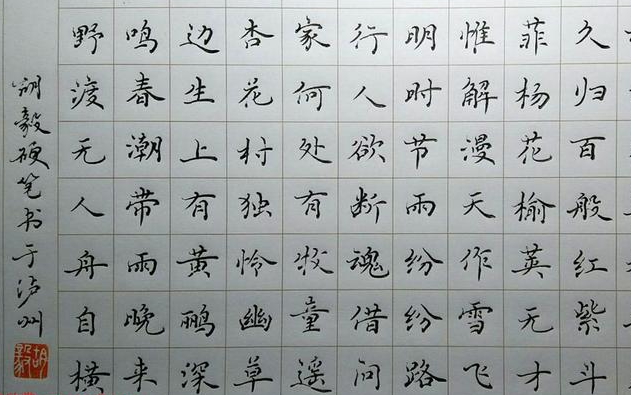 久归百般红紫斗
菲杨花榆英无才
惟解漫天作雪飞
明时节雨纷纷路
行人欲断魂借问
家何处有牧童遥
杏花村独怜幽草
边生上有黄鹂深
鸣春潮带雨晚来
野渡无人舟自横
胡毅硬笔书于泸州
胡毅